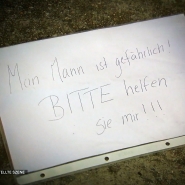 Man Mann ist gefährlich!
BITTE helfen
Sie mir!!!
ELLTE SZENE